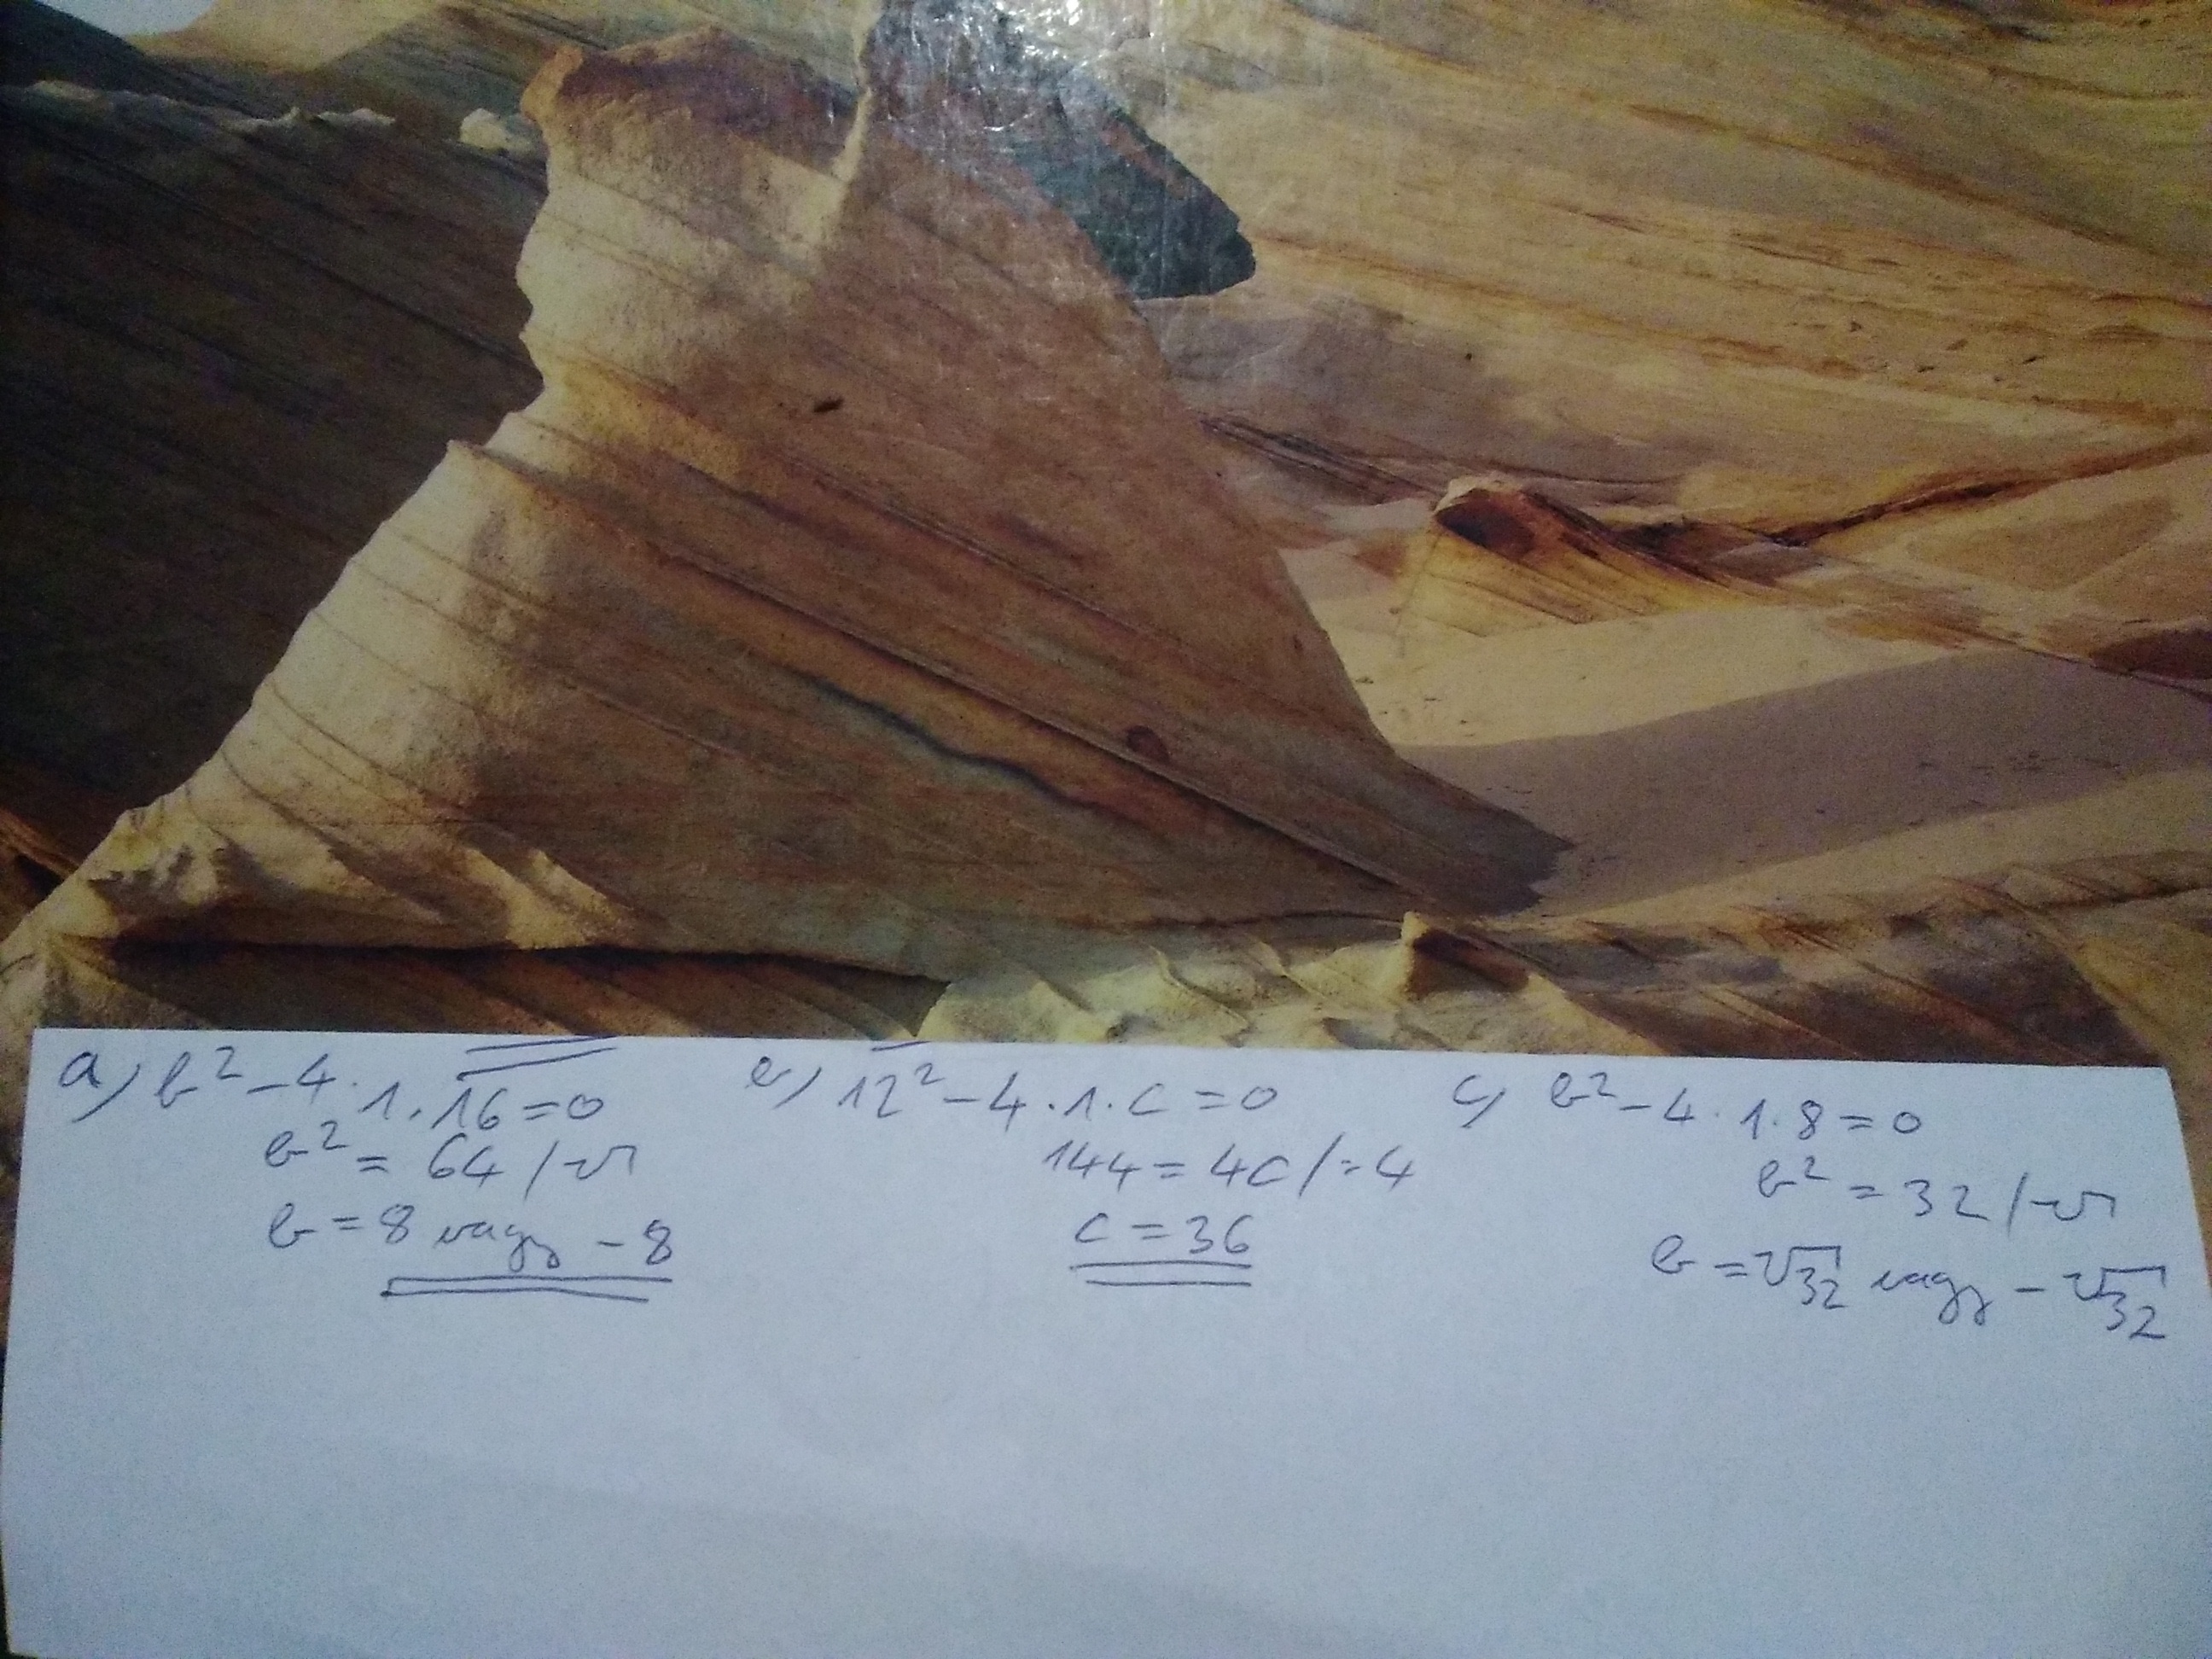 a) b² - 4 · 1 · 16 = 0
b² = 64 /√
b = 8 vagy -8
b) 12² - 4 · 1 · c = 0
144 = 4c / :4
c = 36
c) b² - 4 · 1 · 8 = 0
b² = 32 /√
b = √32 vagy -√32